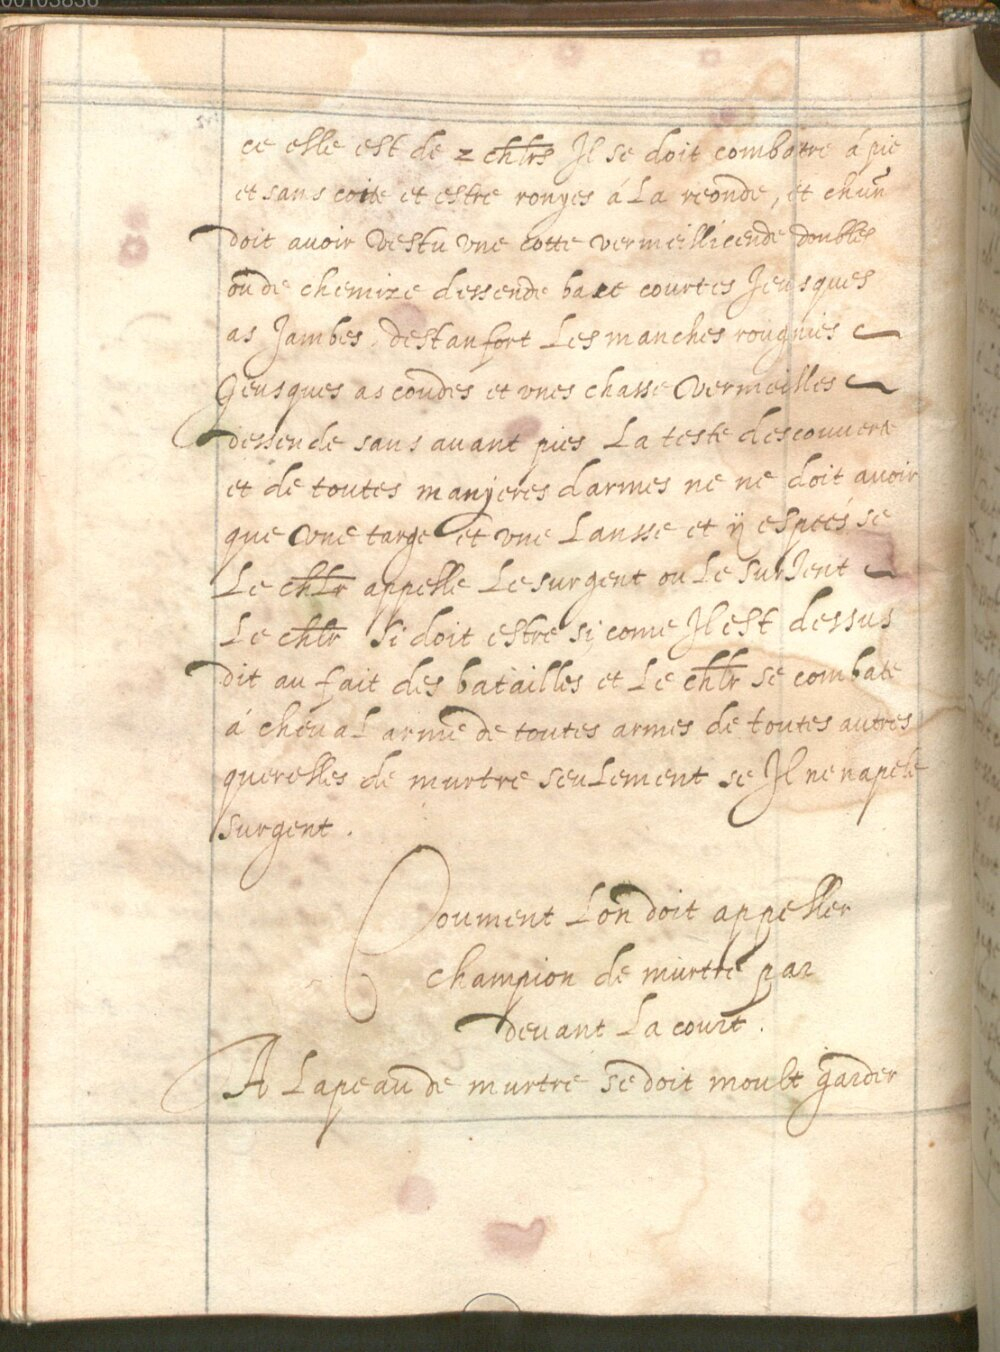 00103838
ce elle est de 2 chlrs Il se doit combatre á pie
et sans coite et estre ronyes á La reonde, et chun̄
doit auoir vestu vne cotte vermeillicende doubles
ou de chemize dessende bact courtes Jeusques
as Jambes destanfort Les manches rougnies
Geusques as coudes et vnes chasse vermeilles
dessende sans auant pies La teste descouuerte
et de toutes manyeres darmes ne ne doit auoir
que vne targe et vne Lansse et ij espees se
Le chlr appelle Le surgent ou Le surJent
Le chlr Si doit estre si come Il est dessus
dit au fait des batailles et Le chlr se combate
á cheual arme de toutes armes de toutes autres
querelles de murtre seulement se Il ne napele
surgent.
Coument Lon doit appeller
champion de murtre par
deuant La court.
A Lapeau de murtre se doit moult garder